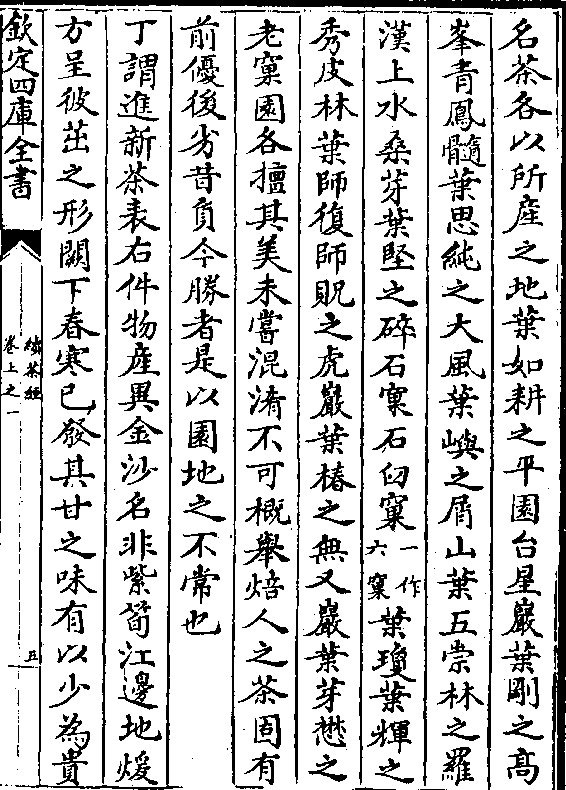 名茶各以所産之地葉如耕之平園台星巖葉剛之髙
峯青鳳髓葉思純之大風葉嶼之屑山葉五崇林之羅
漢上水桑芽葉堅之碎石窠石臼窠一作六窠葉瓊葉輝之
秀皮林葉師復師貺之虎巖葉椿之無又巖葉芽懋之
老窠園各擅其美未嘗混淆不可概舉焙人之茶固有
前優後劣昔負今勝者是以園地之不常也
丁謂進新茶表右件物産異金沙名非紫筍江邊地煖
方呈彼茁之形闕下春寒已發其甘之味有以少為貴
欽定四庫全書
續茶經
卷上之一
五